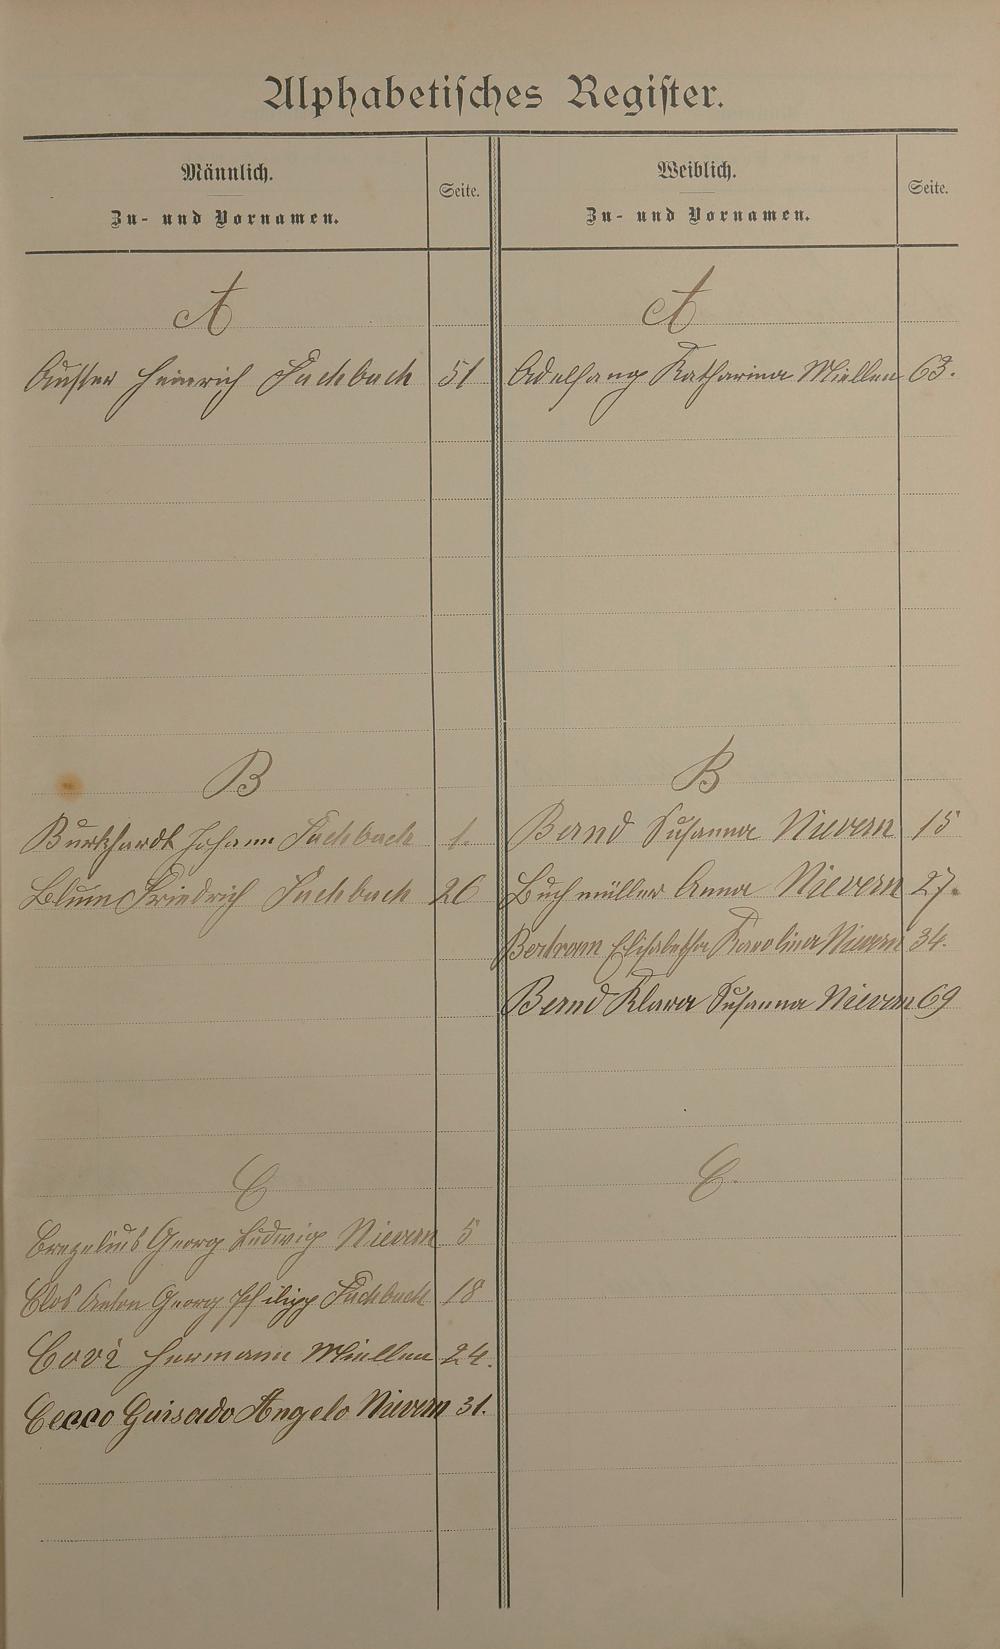 Alphabetisches Register.
Männlich.
Zu- und Vornamen.
Seite.
Weiblich.
Zu- und Vornamen.
Seite.
A
Auster Heinrich Fachbach 51
B
Burkhardt Johann Fachbach 1.
Blum Friedrich Fachbach 26
C
Crezelius Georg Ludwig Nievern 5
Clos Anton Georg Philipp Fachbach 18
Covi Hermann Miellen 24.
Cecco Guisado Angelo Nievern 31.
A
Adelfang Katharina Miellen 63.
B
Bernd Susanna Nievern 15
Buchmüller Anna Nievern 27.
Bertram Elisabetha Karolina Nievern 34.
Bernd Klara Susanna Nievern 69
C.